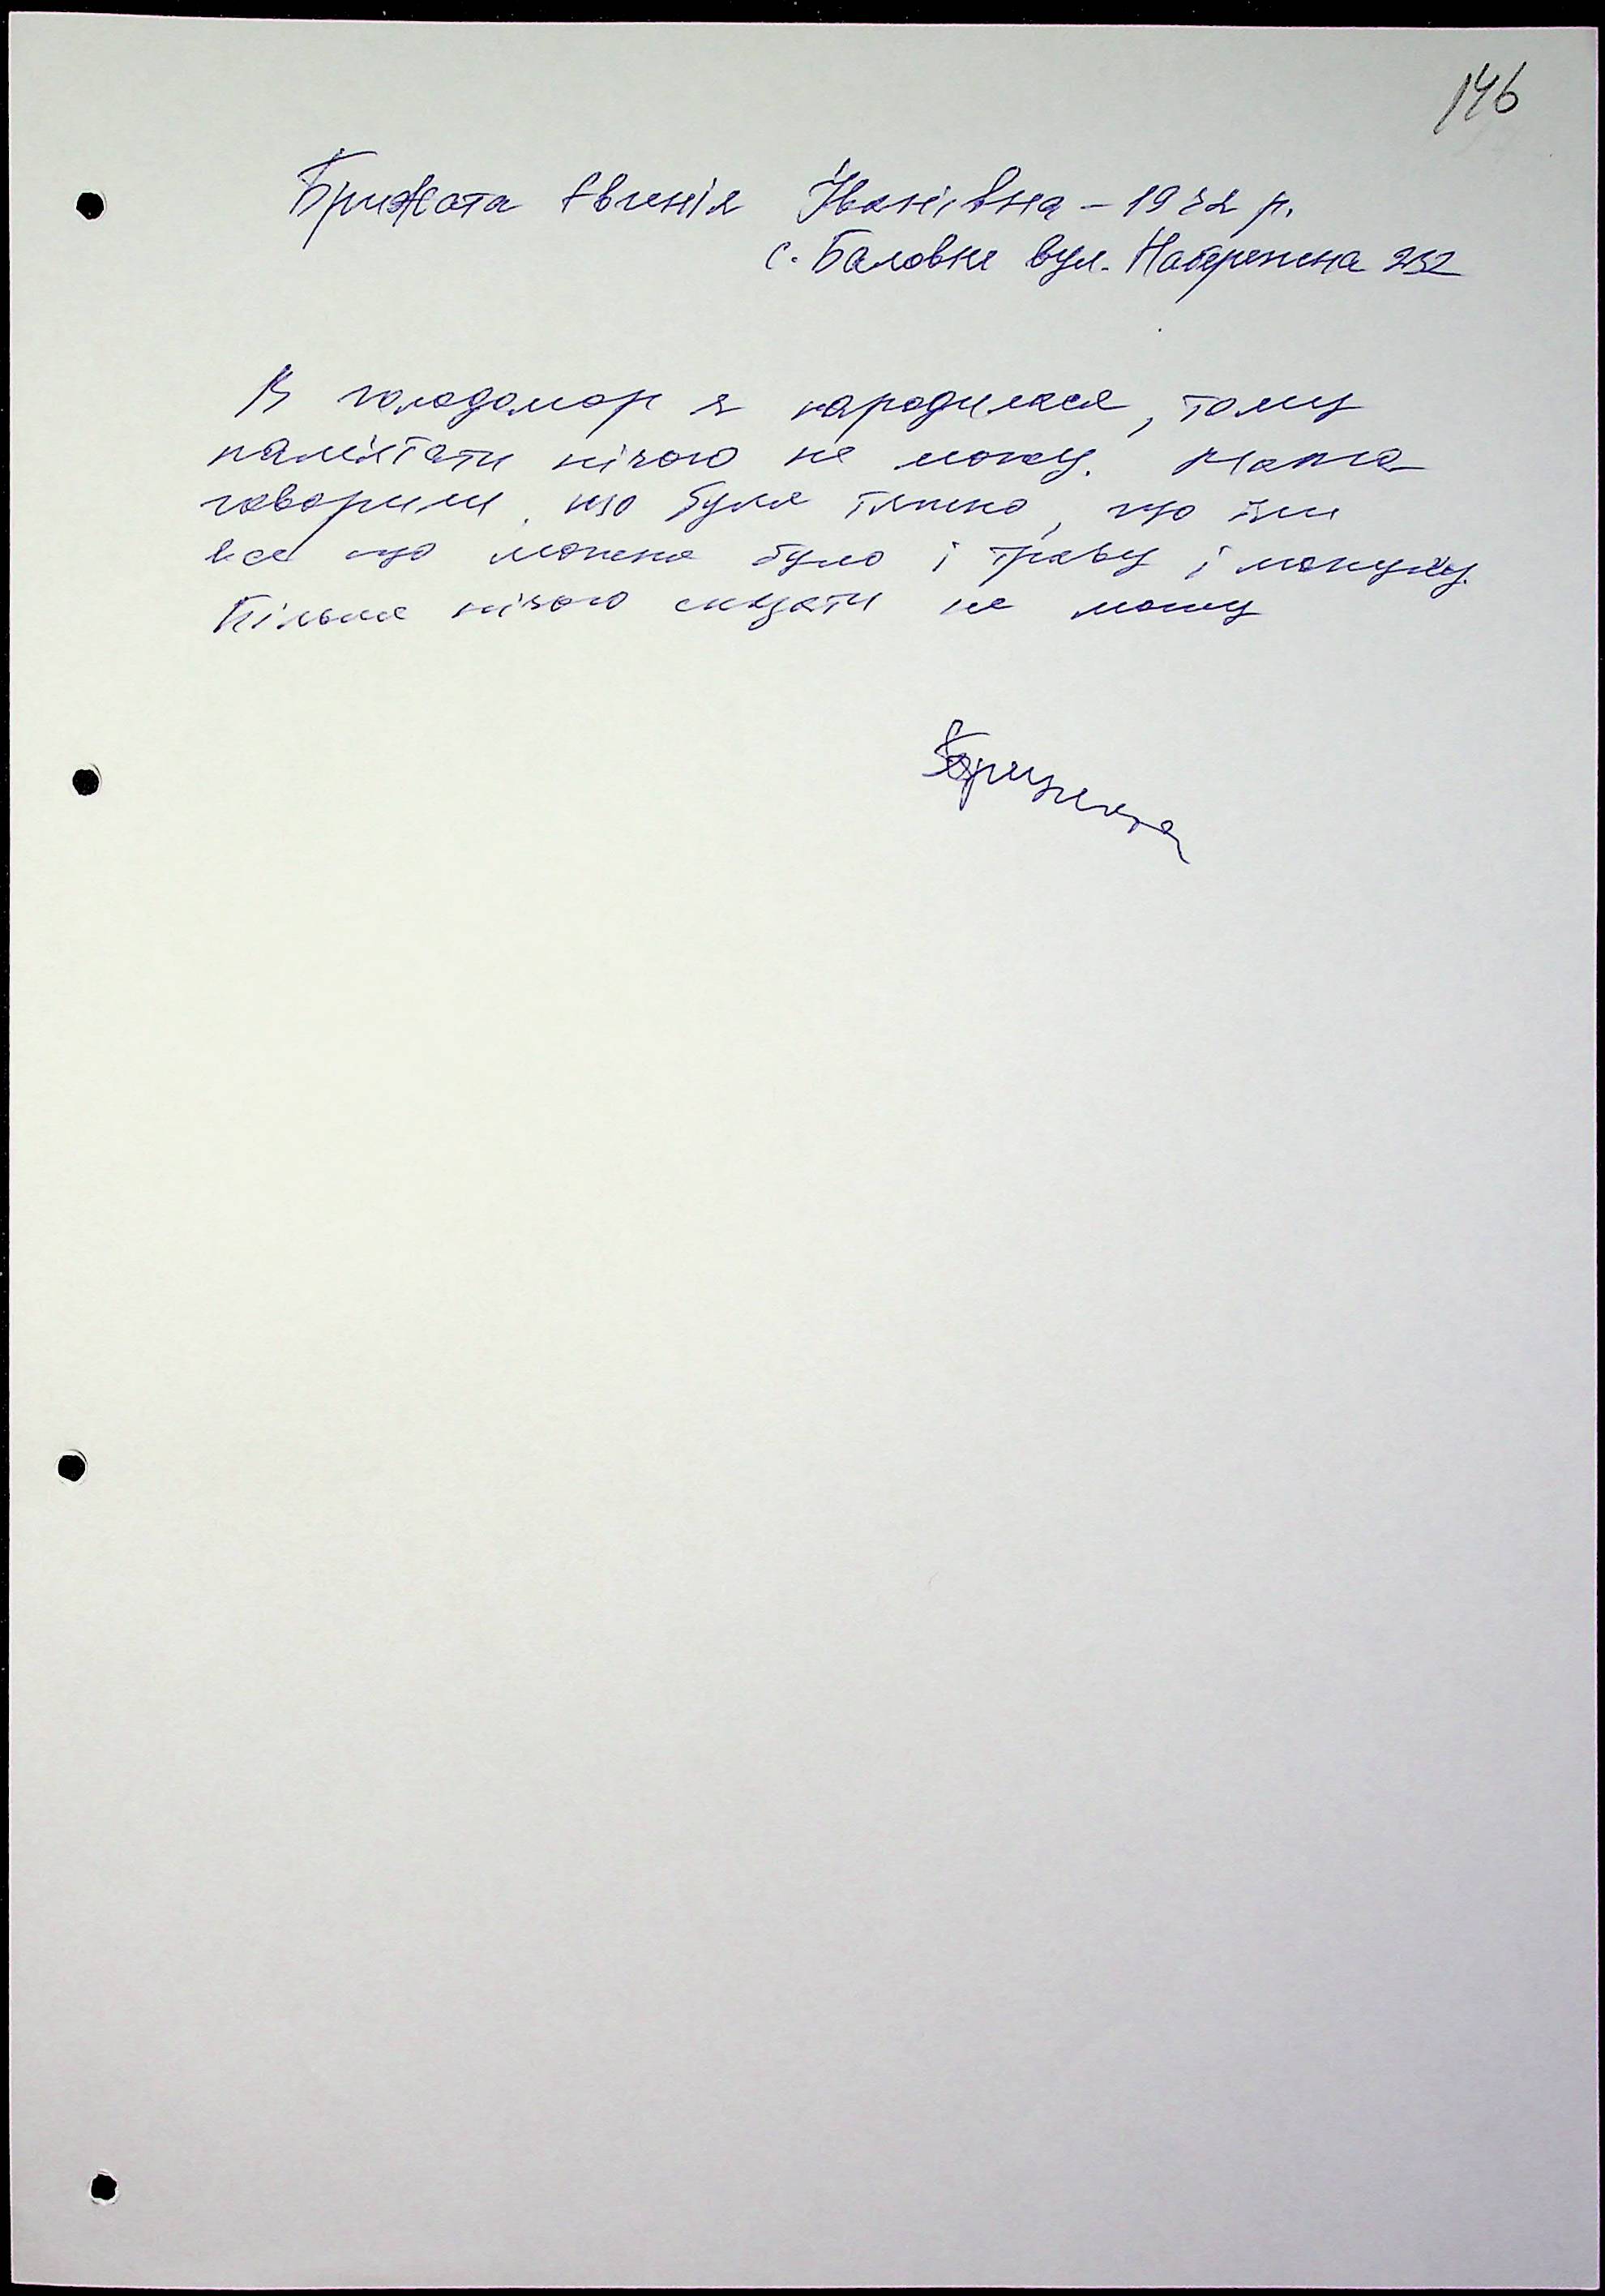 146
Брижата Євгенія Іванівна – 1932 р.
с. Баловне вул. Набережна 232
В голодомор я народилася, тому
пам'ятати нічого не можу. Мама
говорили, що було тяжко, що їли
все що можна було і траву і макуху.
Більше нічого сказати не можу